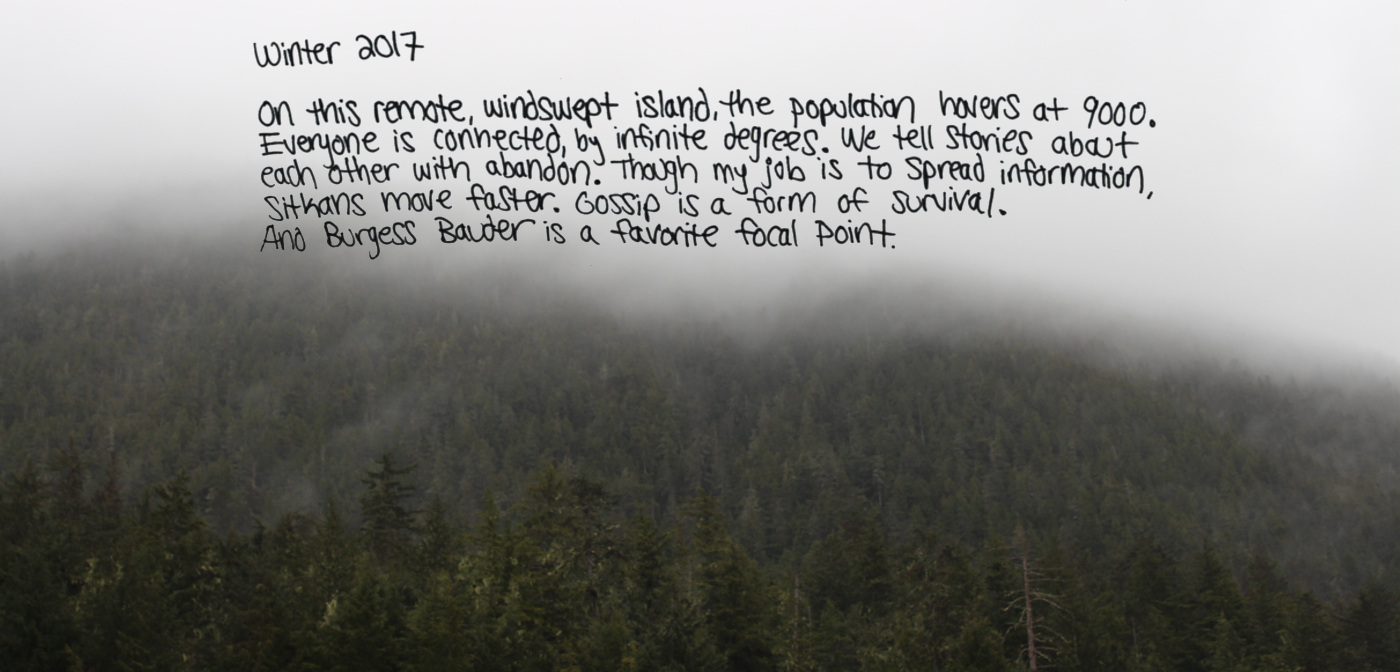 Winter 2017
On this remote, windswept island, the population hovers at 9000.
Everyone is connected, by infinite degrees. We tell stories about
each other with abandon. Though my job is to spread information,
Sitkans move faster. Gossip is a form of survival.
And Burgess Bauder is a favorite focal point.